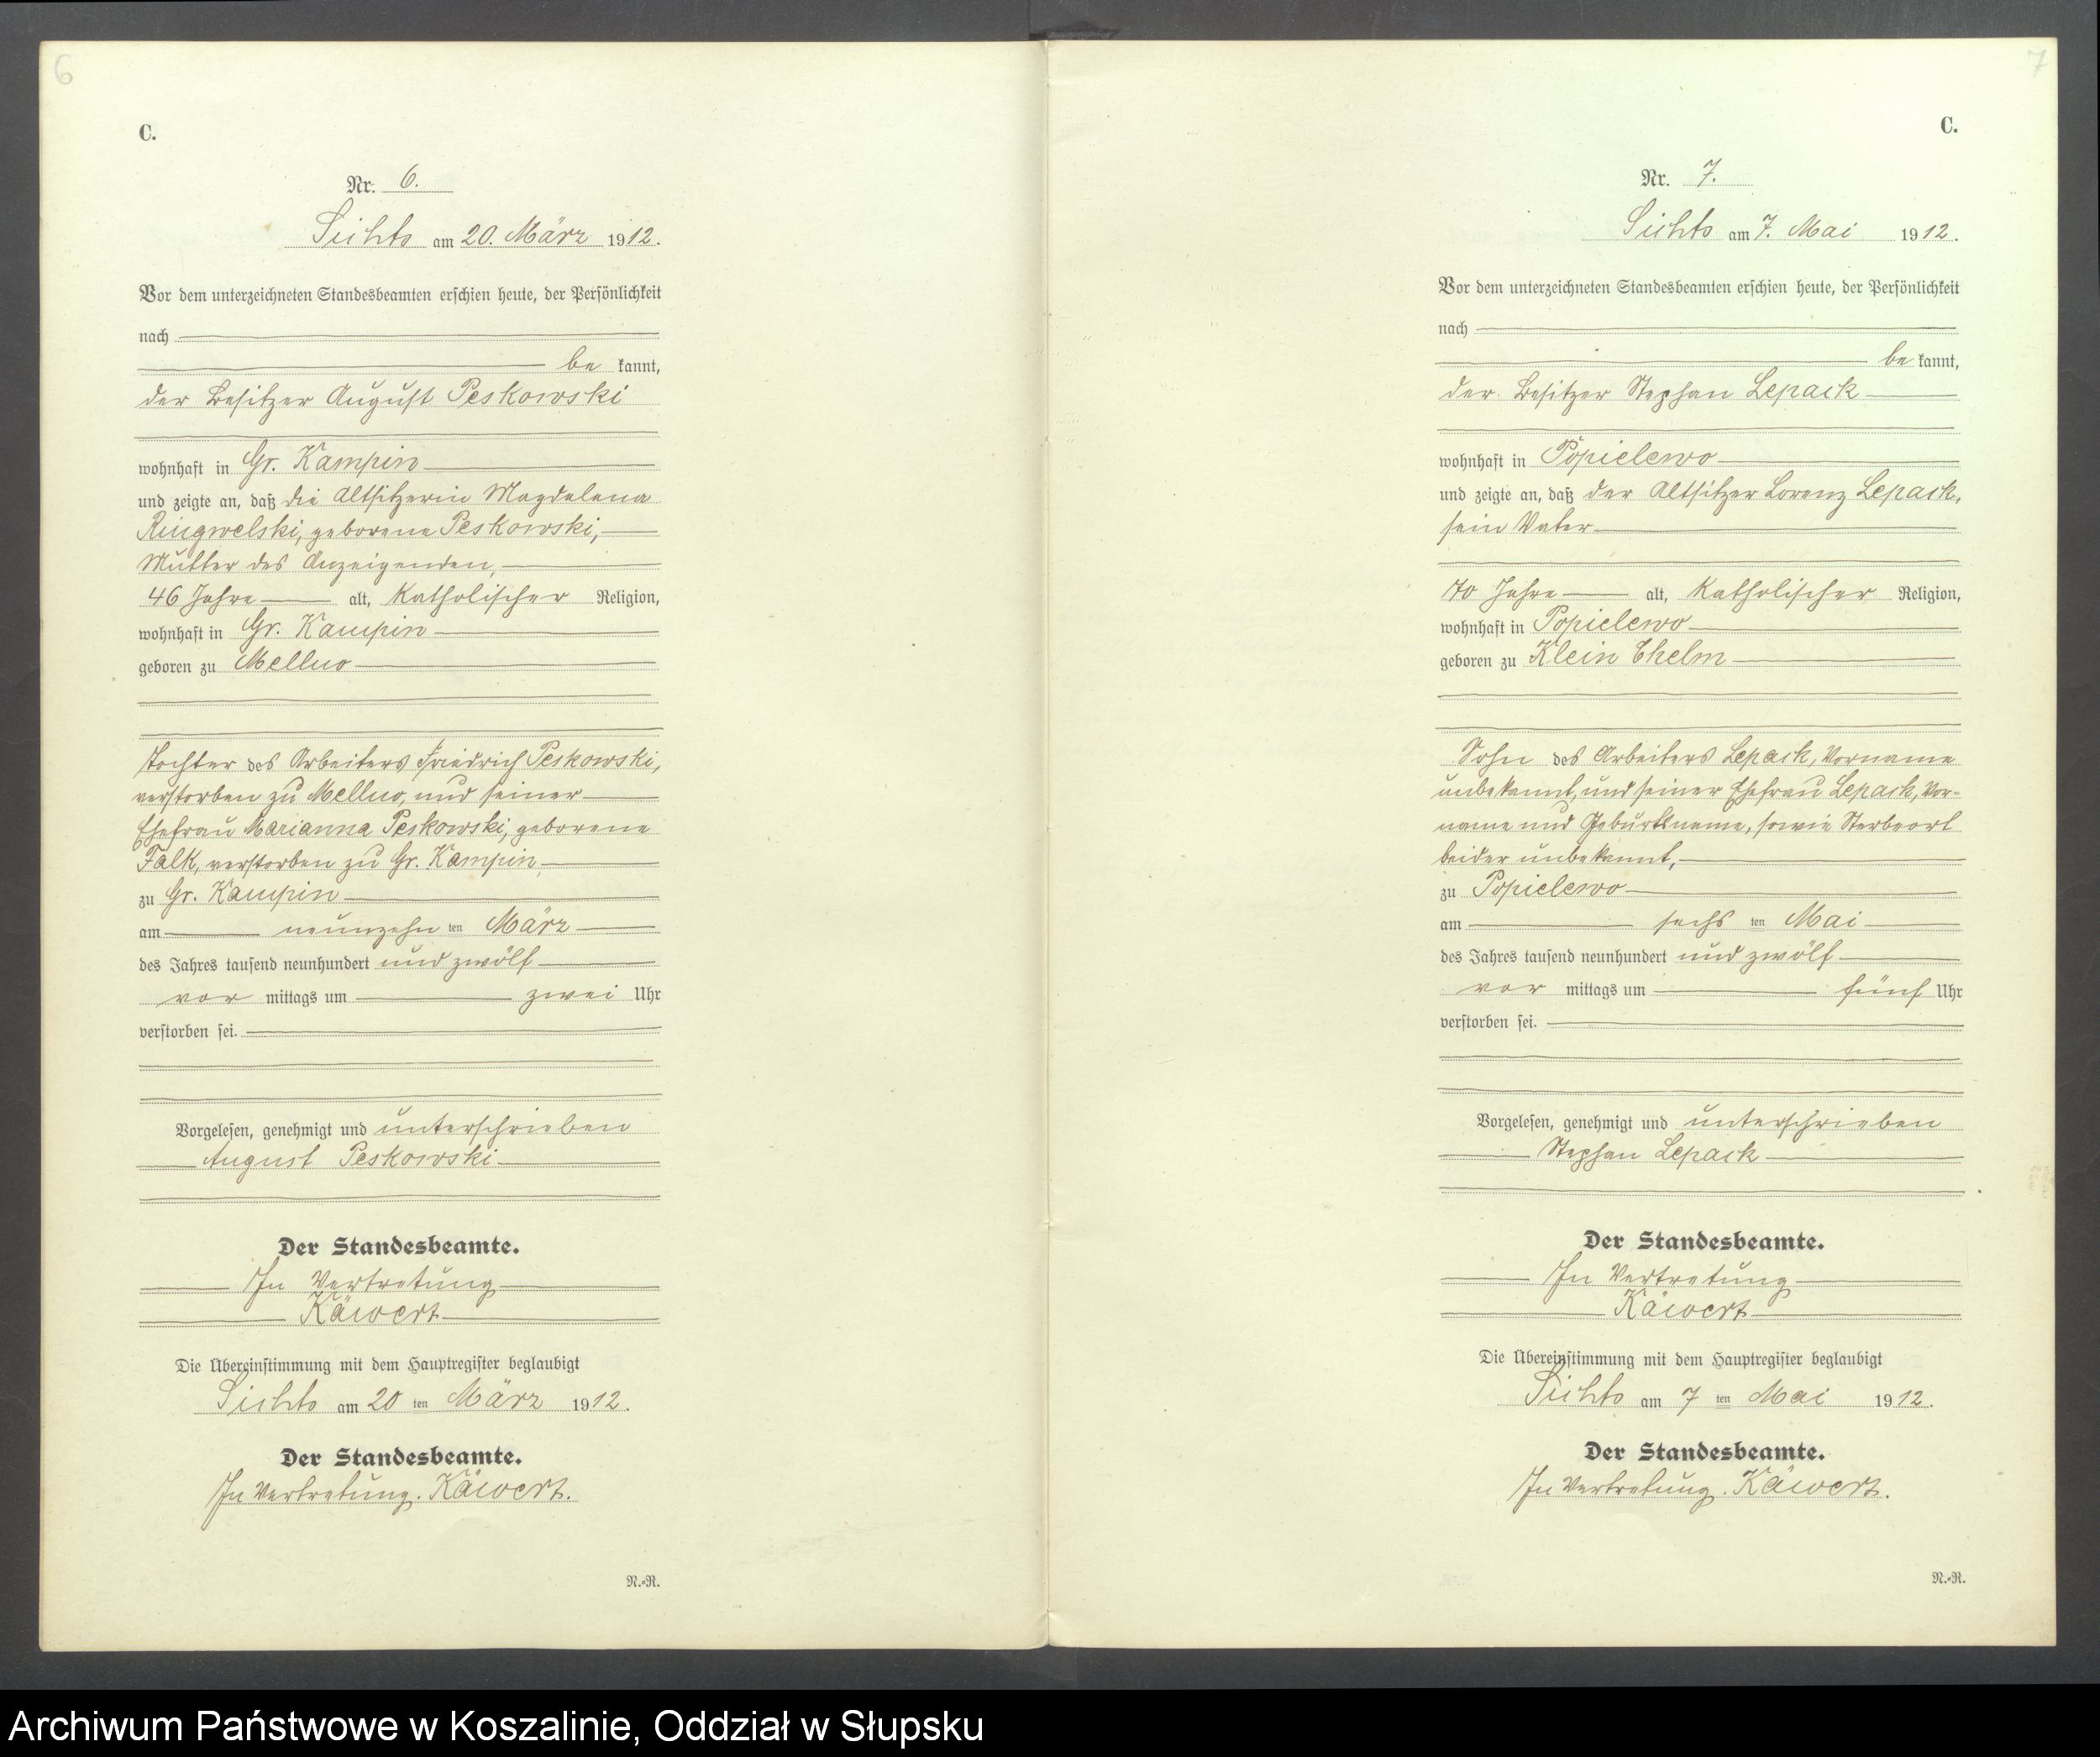 6
C.
Nr. 6.
Lichts am 20. März 1912.
Vor dem unterzeichneten Standesbeamten erschien heute, der Persönlichkeit
nach
be kannt,
der Besitzer August Peskowski
wohnhaft in Gr. Kampin
und zeigte an, daß die Altsitzerin Magdalena
Ringwelski, geborene Peskowski,
Mutter des Anzeigenden,
46 Jahre alt, katholischer Religion,
wohnhaft in Gr. Kampin
geboren zu Mellno
Tochter des Arbeiters Friedrich Peskowski,
verstorben zu Mellno, und seiner
Ehefrau Marianna Peskowski, geborene
Falk, verstorben zu Gr. Kampin,
zu Gr. Kampin
am neunzehn ten März
des Jahres tausend neunhundert und zwölf
vor mittags um zwei Uhr
verstorben sei.
Vorgelesen, genehmigt und unterschrieben
August Peskowski
Der Standesbeamte.
In Vertretung
Käwert
Die Übereinstimmung mit dem Hauptregister beglaubigt
Lichts am 20 ten März 1912.
Der Standesbeamte.
In Vertretung. Käwert.
N.-R.
7
C.
Nr. 7.
Lichts am 7. Mai 1912.
Vor dem unterzeichneten Standesbeamten erschien heute, der Persönlichkeit
nach
be kannt,
der Besitzer Stephan Lepack
wohnhaft in Popielewo
und zeigte an, daß der Altsitzer Lorenz Lepack,
sein Vater
70 Jahre alt, katholischer Religion,
wohnhaft in Popielewo
geboren zu Klein Chelm
Sohn des Arbeiters Lepack, Vorname
unbekannt, und seiner Ehefrau Lepack, Vor-
name und Geburtsname, sowie Sterbeort
beider unbekannt,
zu Popielewo
am sechs ten Mai
des Jahres tausend neunhundert und zwölf
vor mittags um fünf Uhr
verstorben sei.
Vorgelesen, genehmigt und unterschrieben
Stephan Lepack
Der Standesbeamte.
In Vertretung
Käwert
Die Übereinstimmung mit dem Hauptregister beglaubigt
Lichts am 7 ten Mai 1912.
Der Standesbeamte.
In Vertretung. Käwert.
N.-R.
Archiwum Państwowe w Koszalinie, Oddział w Słupsku